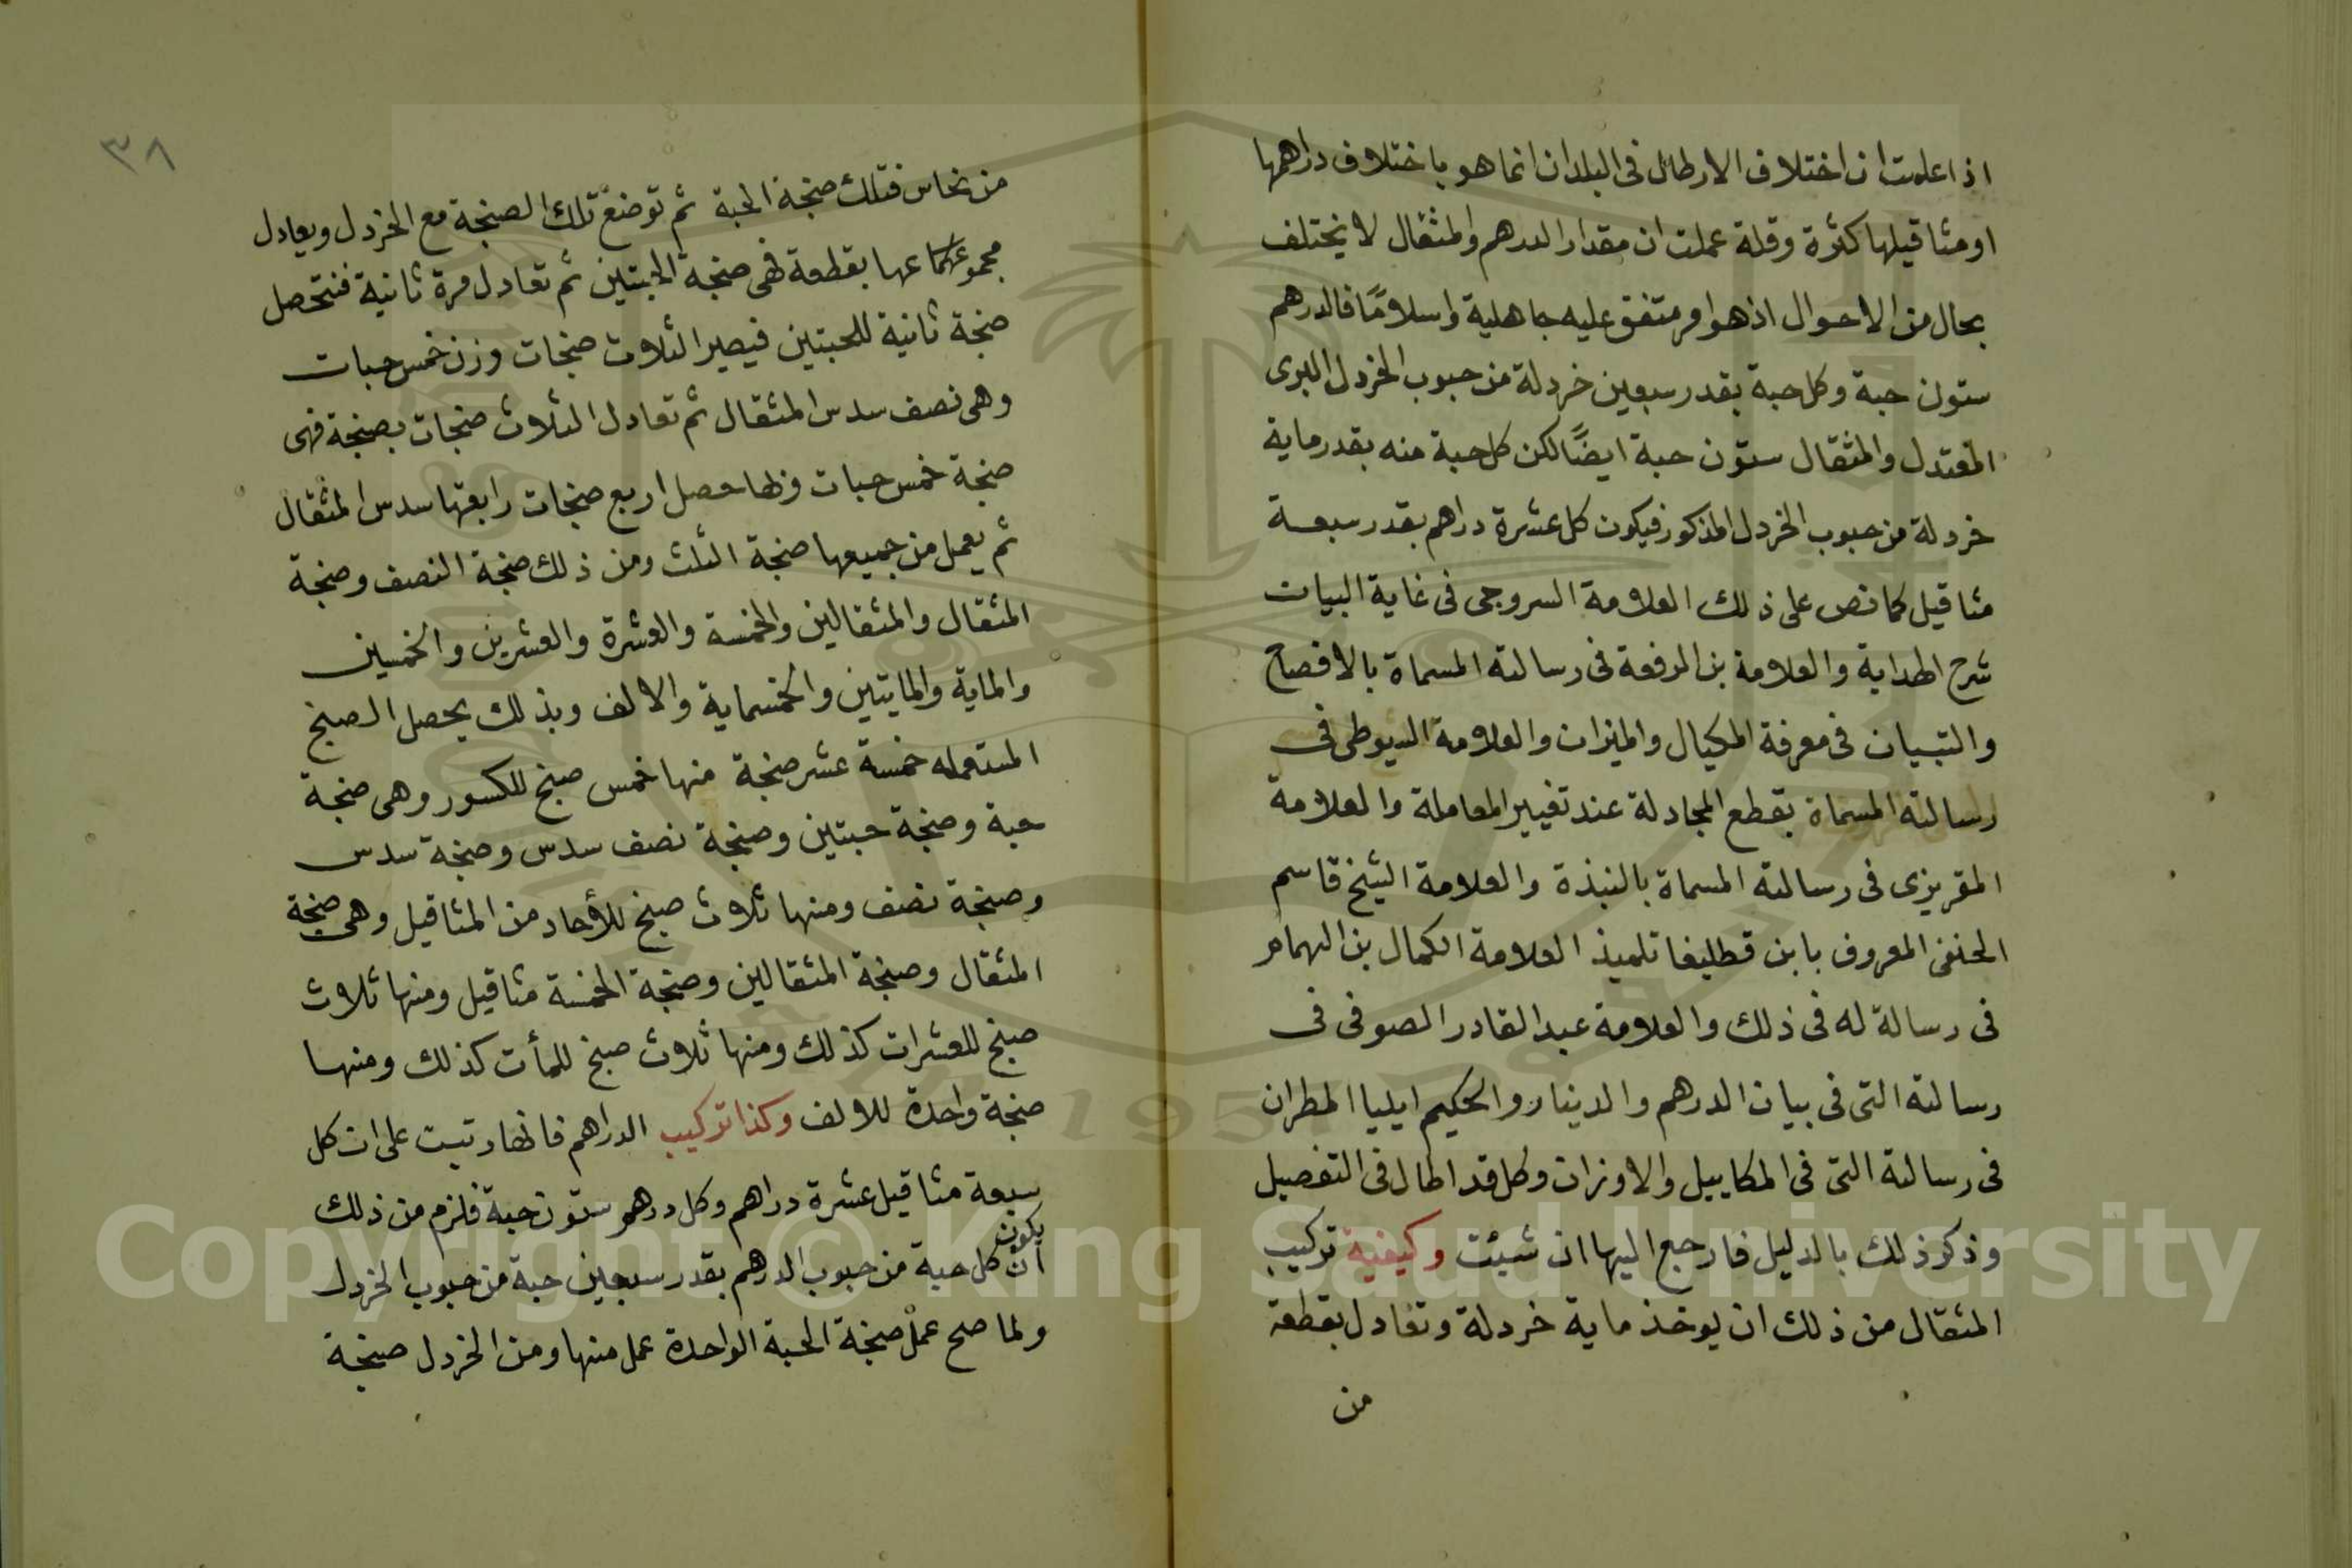 اذا علمت ان اختلاف الارطال فى البلدان انما هو باختلاف دراهمها
او مثاقيلها كثرة وقلة عملت ان مقدار الدرهم والمثقال لا يختلف
بحال من الاحوال اذ هو امر متفق عليه جاهلية واسلامًا فالدرهم
ستون حبة وكل حبة بقدر سبعين خردلة من حبوب الخردل البرى
المعتدل والمثقال ستون حبة ايضًا لكن كل حبة منه بقدر ماية
خردلة من حبوب الخردل المذكور فيكون كل عشرة دراهم بقدر سبعة
مثاقيل كما نص على ذلك العلامة السروجى فى غاية البيات
شرح الهداية والعلامة بن الرفعة فى رسالته المسماة بالافصاح
والتبيان فى معرفة المكيال والميزان والعلامة السيوطى فى
رسالته المسماة بقطع المجادلة عند تغيير المعاملة والعلامة
المقريزى فى رسالته المسماة بالنبذة والعلامة الشيخ قاسم
الحنفى المعروف بابن قطليغا تلميذ العلامة الكمال بن الهمام
فى رسالة له فى ذلك والعلامة عبد القادر الصوفى فى
رسالته التى فى بيان الدرهم والدينار والحكيم ايليا المطران
فى رسالته التى فى المكاييل والاوزان وكل قد اطال فى التفصيل
وذكر ذلك بالدليل فارجع اليها ان شيئت وكيفية تركيب
المثقال من ذلك ان يوخذ ماية خردلة وتعادل بقطعة
من
٣٨
من نحاس فتلك صنجة الحبة ثم توضع تلك الصنجة مع الخردل ويعادل
بقطعة فهى صنجة الحبتين ثم تعادل مرة ثانية فتحصل
صنجة ثانية للحبتين فيصير الثلاث صنجات وزن خمس حبات
وهى نصف سدس المثقال ثم تعادل الثلاث صنجات بصنجة فهى
صنجة خمس حبات حصل اربع صنجات رابعتها سدس المثقال
ثم يعمل من جميعها صنجة الثلث ومن ذلك صنجة النصف وصنجة
المثقال والمثقالين والخمسة والعشرة والعشرين والخمسين
والماية والمايتين والخمسماية والالف وبذلك يحصل الصنج
المستعمله خمسة عشر صنجة منها خمس صنج للكسور وهى صنجة
حبة وصنجة حبتين وصنجة نصف سدس وصنجة سدس
وصنجة نصف ومنها ثلاث صنج للأحاد من المثاقيل وهى صنجة
المثقال وصنجة المثقالين وصنجة الخمسة مثاقيل ومنها ثلاث
صنج للعشرات كذلك ومنها ثلاث صنج للمأت كذلك ومنها
صنجة واحدة للالف وكذا تركيب الدراهم فانها رتبت على ان كل
سبعة مثاقيل عشرة دراهم وكل درهم ستون حبة فلزم من ذلك
ان يكون كل حبة من حبوب الدرهم بقدر سبعين حبة من حبوب الخردل
ولما صح عمل صنجة الحبة الواحدة عمل منها ومن الخردل صنجة
Copyright © King Saud University
1957